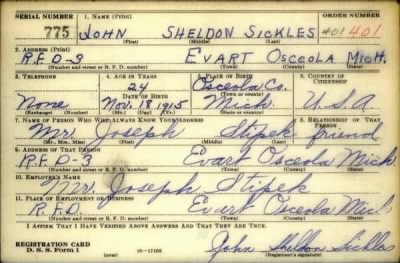 SERIAL NUMBER 1. NAME (Print) ORDER NUMBER
775 JOHN SHELDON SICKLES 401 401
(First) (Middle) (Last)
2. ADDRESS (Print)
R.F.D-3 EVART OSCEOLA MICH.
(Number and street or R. F. D. number) (Town) (County) (State)
3. TELEPHONE 4. AGE IN YEARS 5. PLACE OF BIRTH 6. COUNTRY OF CITIZENSHIP
24 Osceola, Co.
DATE OF BIRTH (Town or county)
None Nov. 18, 1915 Mich. U.S.A
(Exchange) (Number) (Mo.) (Day) (Yr.) (State or country)
7. NAME OF PERSON WHO WILL ALWAYS KNOW YOUR ADDRESS 8. RELATIONSHIP OF THAT PERSON
Mr. Joseph Stipek friend
(Mr., Mrs., Miss) (First) (Middle) (Last)
9. ADDRESS OF THAT PERSON
R.F.D-3 Evart Osceola Mich
(Number and street or R. F. D. number) (Town) (County) (State)
10. EMPLOYER'S NAME
Mr. Joseph Stipek
11. PLACE OF EMPLOYMENT OR BUSINESS
R.F.D. Evart Osceola Mich
(Number and street or R. F. D. number) (Town) (County) (State)
I AFFIRM THAT I HAVE VERIFIED ABOVE ANSWERS AND THAT THEY ARE TRUE.
REGISTRATION CARD
D. S. S. Form 1 16-17105 John Sheldon Sickles
(Registrant's signature)